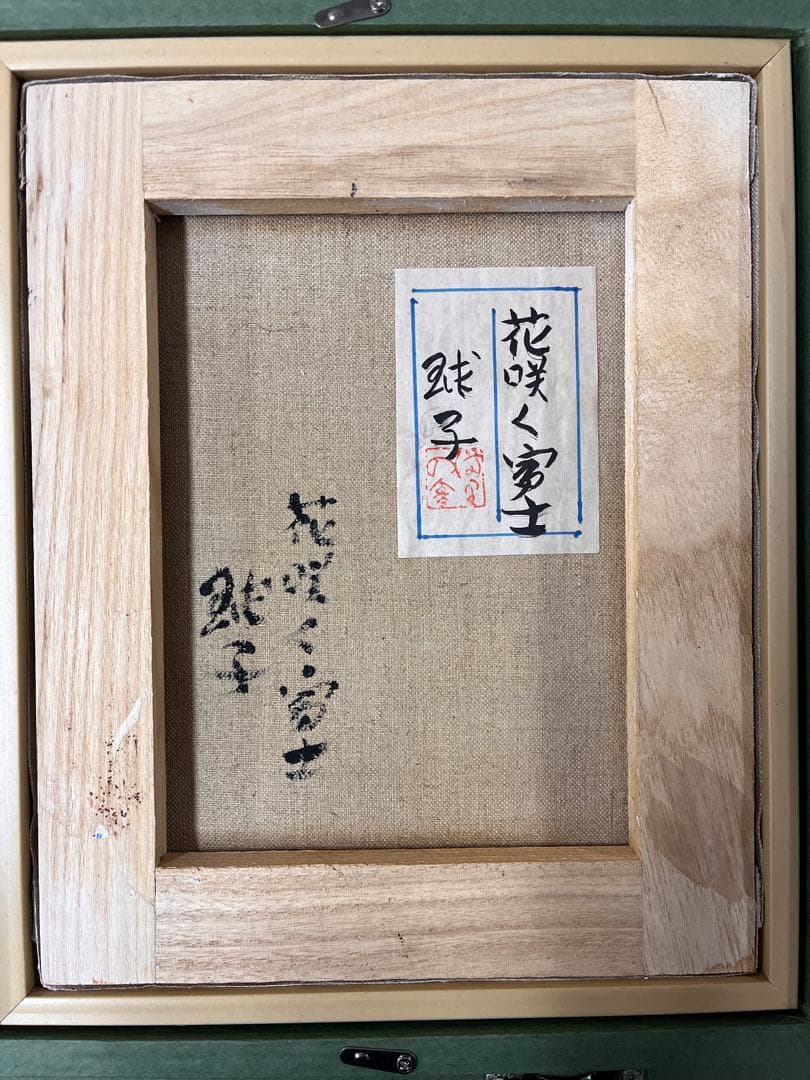 花咲く富士
球子
花咲く富士
球子